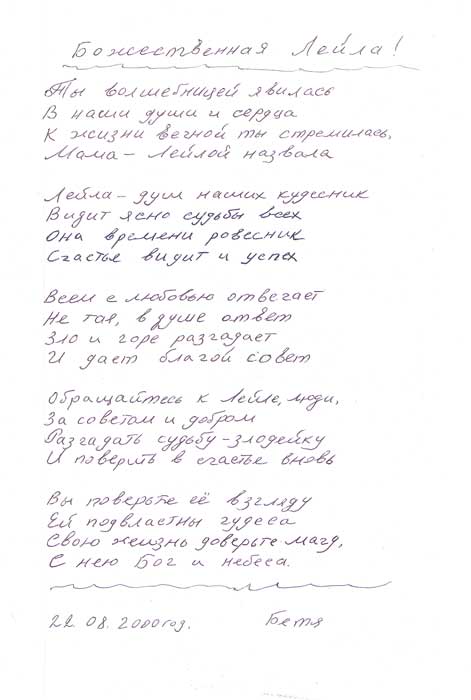 Божественная Лейла!
Ты волшебницей явилась
В наши души и сердца
К жизни вечной ты стремилась,
Мама - Лейлой назвала
Лейла - душ наших кудесник
Видит ясно судьбы всех
Она времени ровесник
Счастье видит и успех
Всем с любовью отвечает
Не тая, в душе ответ
Зло и горе разгадает
И дает благой совет
Обращайтесь к Лейле, люди,
За советом и добром
Разгадать судьбу-злодейку
И поверить в счастье вновь
Вы поверьте её взгляду
Ей подвластны чудеса
Свою жизнь доверьте магу,
С нею Бог и небеса.
22.08.2000год. Бетя